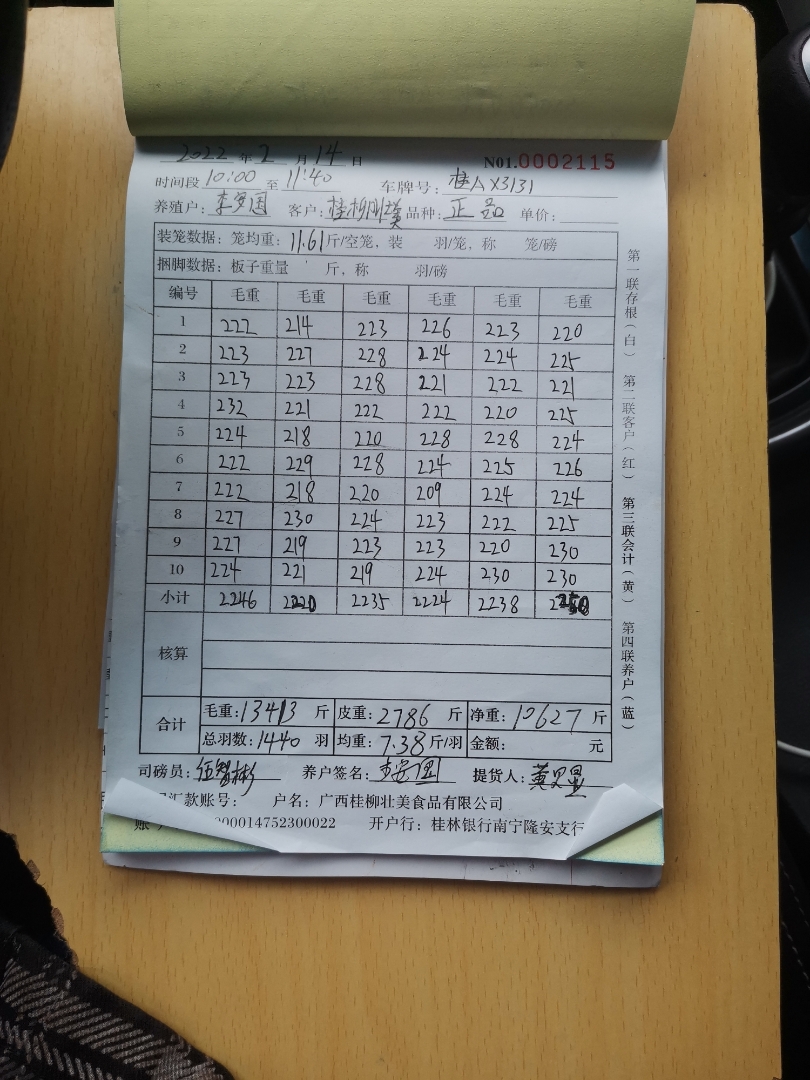 2022 年 2 月 14 日 N01.0002115
时间段 10:00 至 11:40 车牌号: 桂AX3131
养殖户: 客户: 桂柳 品种: 正品 单价:
装笼数据: 笼均重: 11.61斤/空笼, 装 羽/笼, 称 笼/磅
捆脚数据: 板子重量 斤, 称 羽/磅
编号 毛重 毛重 毛重 毛重 毛重 毛重
1 222 214 223 226 223 220
2 223 227 228 224 224 225
3 223 223 228 221 222 221
4 232 221 222 222 220 225
5 224 218 220 228 228 224
6 222 229 228 224 225 226
7 222 218 220 209 224 224
8 227 230 224 223 222 225
9 227 219 223 223 220 230
10 224 221 219 224 230 230
小计 2246 2220 2235 2224 2238 2250
核算
合计 毛重: 13413 斤 皮重: 2786 斤 净重: 10627 斤
总羽数: 1440 羽 均重: 7.38 斤/羽 金额: 元
司磅员: 伍智彬 养户签名: 提货人:
汇款账号: 户名: 广西桂柳壮美食品有限公司
00014752300022 开户行: 桂林银行南宁隆安支行
第一联存根(白) 第二联客户(红) 第三联会计(黄) 第四联养户(蓝)